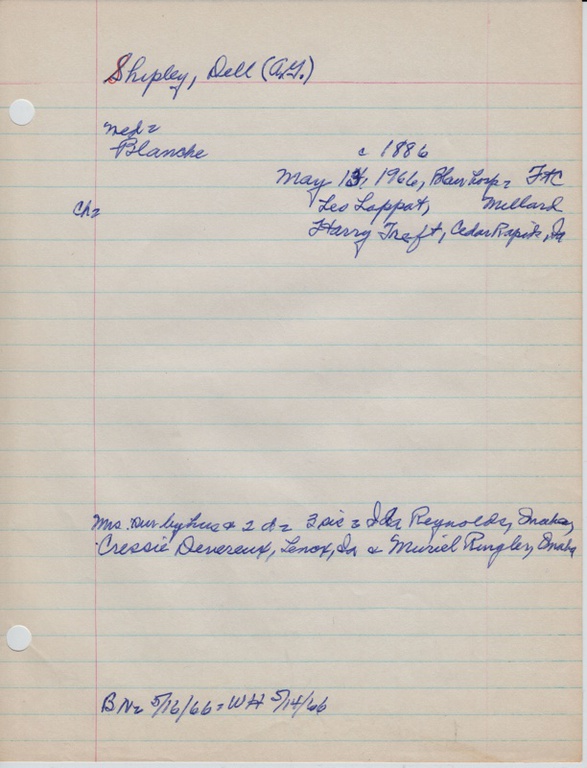 Shipley, Dell (A.G.)
med =
Blanche c 1886
May 13, 1966, Blair Hosp = FHC
Ch = Leo Lappat, Millard
Harry Treft, Cedar Rapids, Ia
Mrs. sur by hus & 2 d = 3 sis = Ida Reynolds, Omaha,
Cressie Devereux, Lenox, Ia & Muriel Ringler, Omaha
BN = 5/16/66 = WH 5/14/66